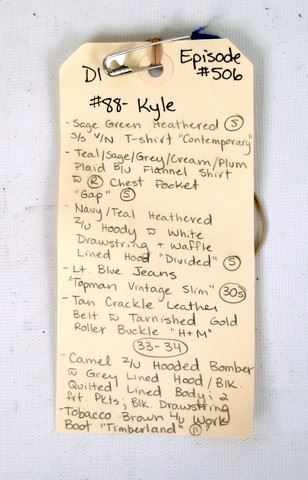 D1 Episode
#506
#88- Kyle
- Sage Green Heathered (S)
S/S V/N T-shirt "Contemporary"
- Teal/Sage/Grey/Cream/Plum
Plaid B/U Flannel Shirt
w (R) Chest Pocket
"Gap" (S)
- Navy/Teal Heathered
Z/U Hoody w White
Drawstring + Waffle
Lined Hood "Divided" (S)
- Lt. Blue Jeans
"Topman Vintage Slim" (30s)
- Tan Crackle Leather
Belt w Tarnished Gold
Roller Buckle "H+M"
(33-34)
- Camel Z/U Hooded Bomber
w Grey Lined Hood/Blk.
Quilted Lined Body; 2
frt. Pkts; Blk. Drawstring
- Tobacco Brown L/U Work
Boot "Timberland"